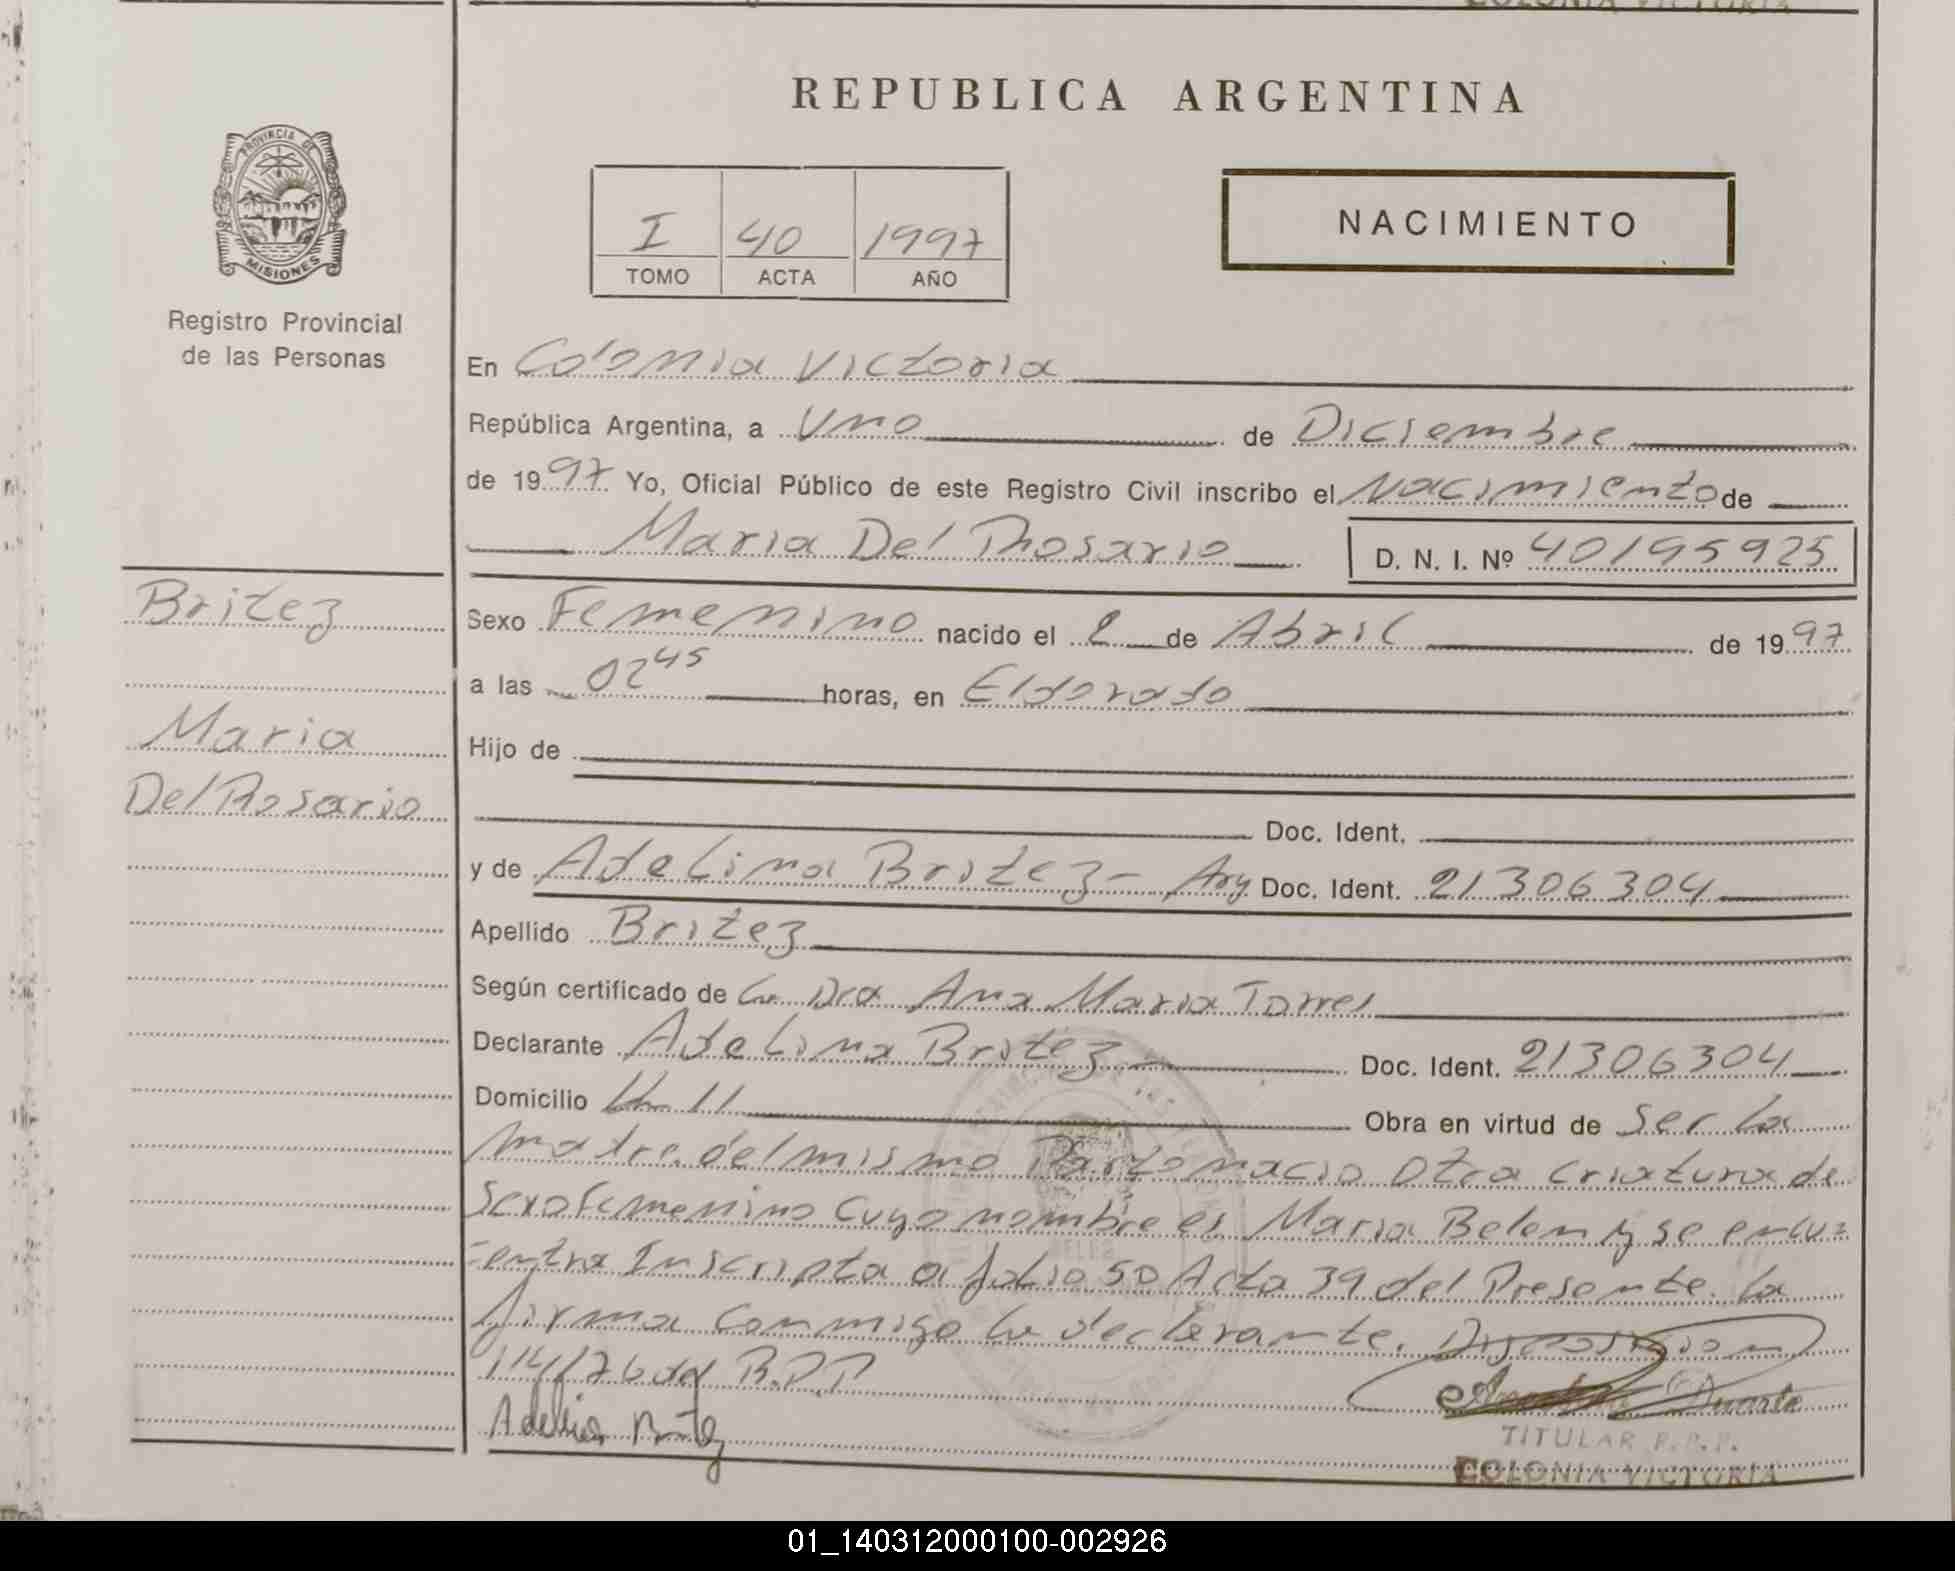 COLONIA VICTORIA
REPUBLICA ARGENTINA
PROVINCIA DE
MISIONES
Registro Provincial
de las Personas
I 40 1997
TOMO ACTA AÑO
NACIMIENTO
En Colonia Victoria
República Argentina, a Uno de Diciembre
de 1997 Yo, Oficial Público de este Registro Civil inscribo el Nacimiento de
Maria Del Rosario D. N. I. Nº 40195925
Britez
Maria
Del Rosario
Sexo Femenino nacido el 2 de Abril de 1997
a las 02 45 horas, en Eldorado
Hijo de
Doc. Ident.
y de Adelina Britez - Arg. Doc. Ident. 21306304
Apellido Britez
Según certificado de La Dra Ana Maria Torres
Declarante Adelina Britez Doc. Ident. 21306304
Domicilio Km 11 Obra en virtud de Ser la
Madre del mismo Parto nacio Otra Criatura de
Sexo Femenino Cuyo nombre es Maria Belen y se encu=
=entra Inscripta a folio 50 Acta 39 del Presente. La
firma Conmigo la declarante. Disposicion
114/76 del R.P.P
Adelina Britez
Duarte
TITULAR R.P.P.
COLONIA VICTORIA
01_140312000100-002926